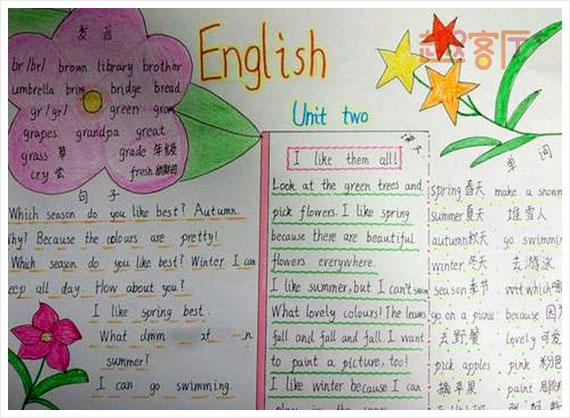 English
Unit two
趣客厅
发音
br/br/ brown library brother
umbrella bridge bread
gr/gr/ green
grapes grandpa great
grass 草 grade 年级
cry 哭 fresh
句子
Which season do you like best? Autumn.
Why? Because the colours are pretty!
Which season do you like best? Winter. I can
all day. How about you?
I like spring best.
What
summer?
I can go swimming.
课文
I like them all!
Look at the green trees and
pick flowers. I like spring
because there are beautiful
flowers everywhere.
I like summer, but I can't swim
What lovely colours! The leaves
fall and fall and fall. I want
to paint a picture, too!
I like winter because I can
play in the snow
单词
spring 春天 make a snowm
summer 夏天 堆雪人
autumn 秋天 go swimming
winter 冬天 去游泳
season 季节 which
go on a picnic because 因
去野餐 lovely 可爱
pick apples pink 粉色
摘苹果 paint